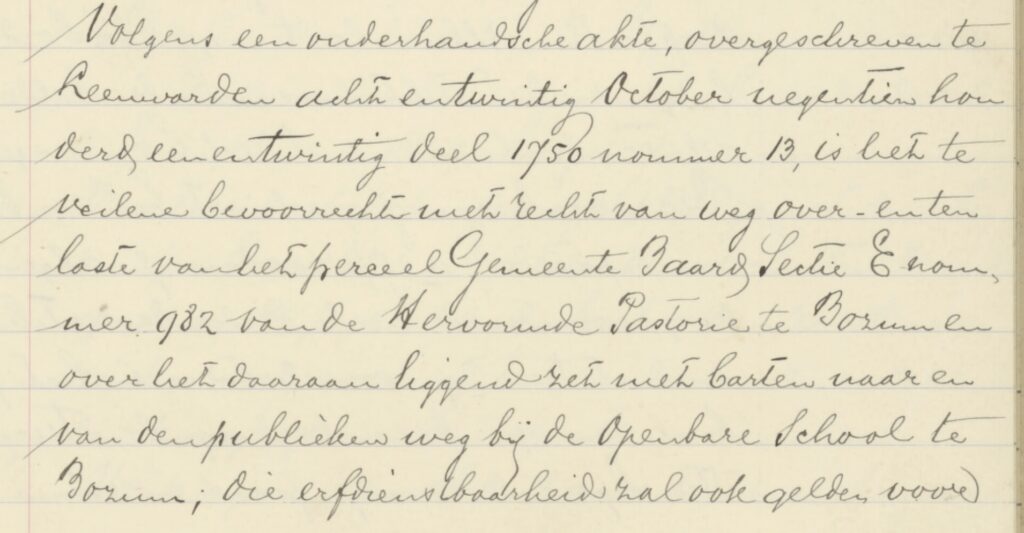 Volgens een onderhandsche akte, overgeschreven te
Leeuwarden acht en twintig October negentien hon
derd een en twintig deel 1750 nommer 13, is het te
veilene bevoorrecht met recht van weg over - en ten
laste van het perceel Gemeente Baard Sectie E nom,
mer 982 van de Hervormde Pastorie te Bozum en
over het daaraan liggend zet met barten naar en
van den publieken weg bij de Openbare School te
Bozum; die erfdienstbaarheid zal ook gelden voor